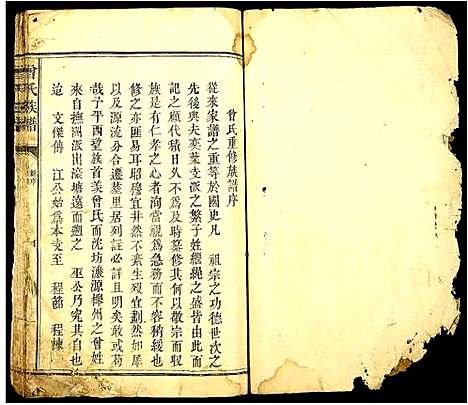 曾氏重修族譜序
從來家譜之重等於國史凡 祖宗之功德世次之
先後與夫奕葉支派之繁子姓繼繩之盛皆由此而
記之顧代積日久不為及時纂修其何以敬宗而収
族是有仁孝之心者洵當視為急務而不容稍緩也
修之亦匪易耳昭穆宜井然不紊生歿宜劃然如犀
以及源流分合遷塟里居列註必詳且明矣敢或苟
哉子平西望族首羙曾氏而沈坊濂源櫸州之曾姓
來自撫洲派出濠墟遠而溯之 巫公乃究其自也
迨 文傑傳 江公始為本支至 程節 程棟
曾氏族譜
序